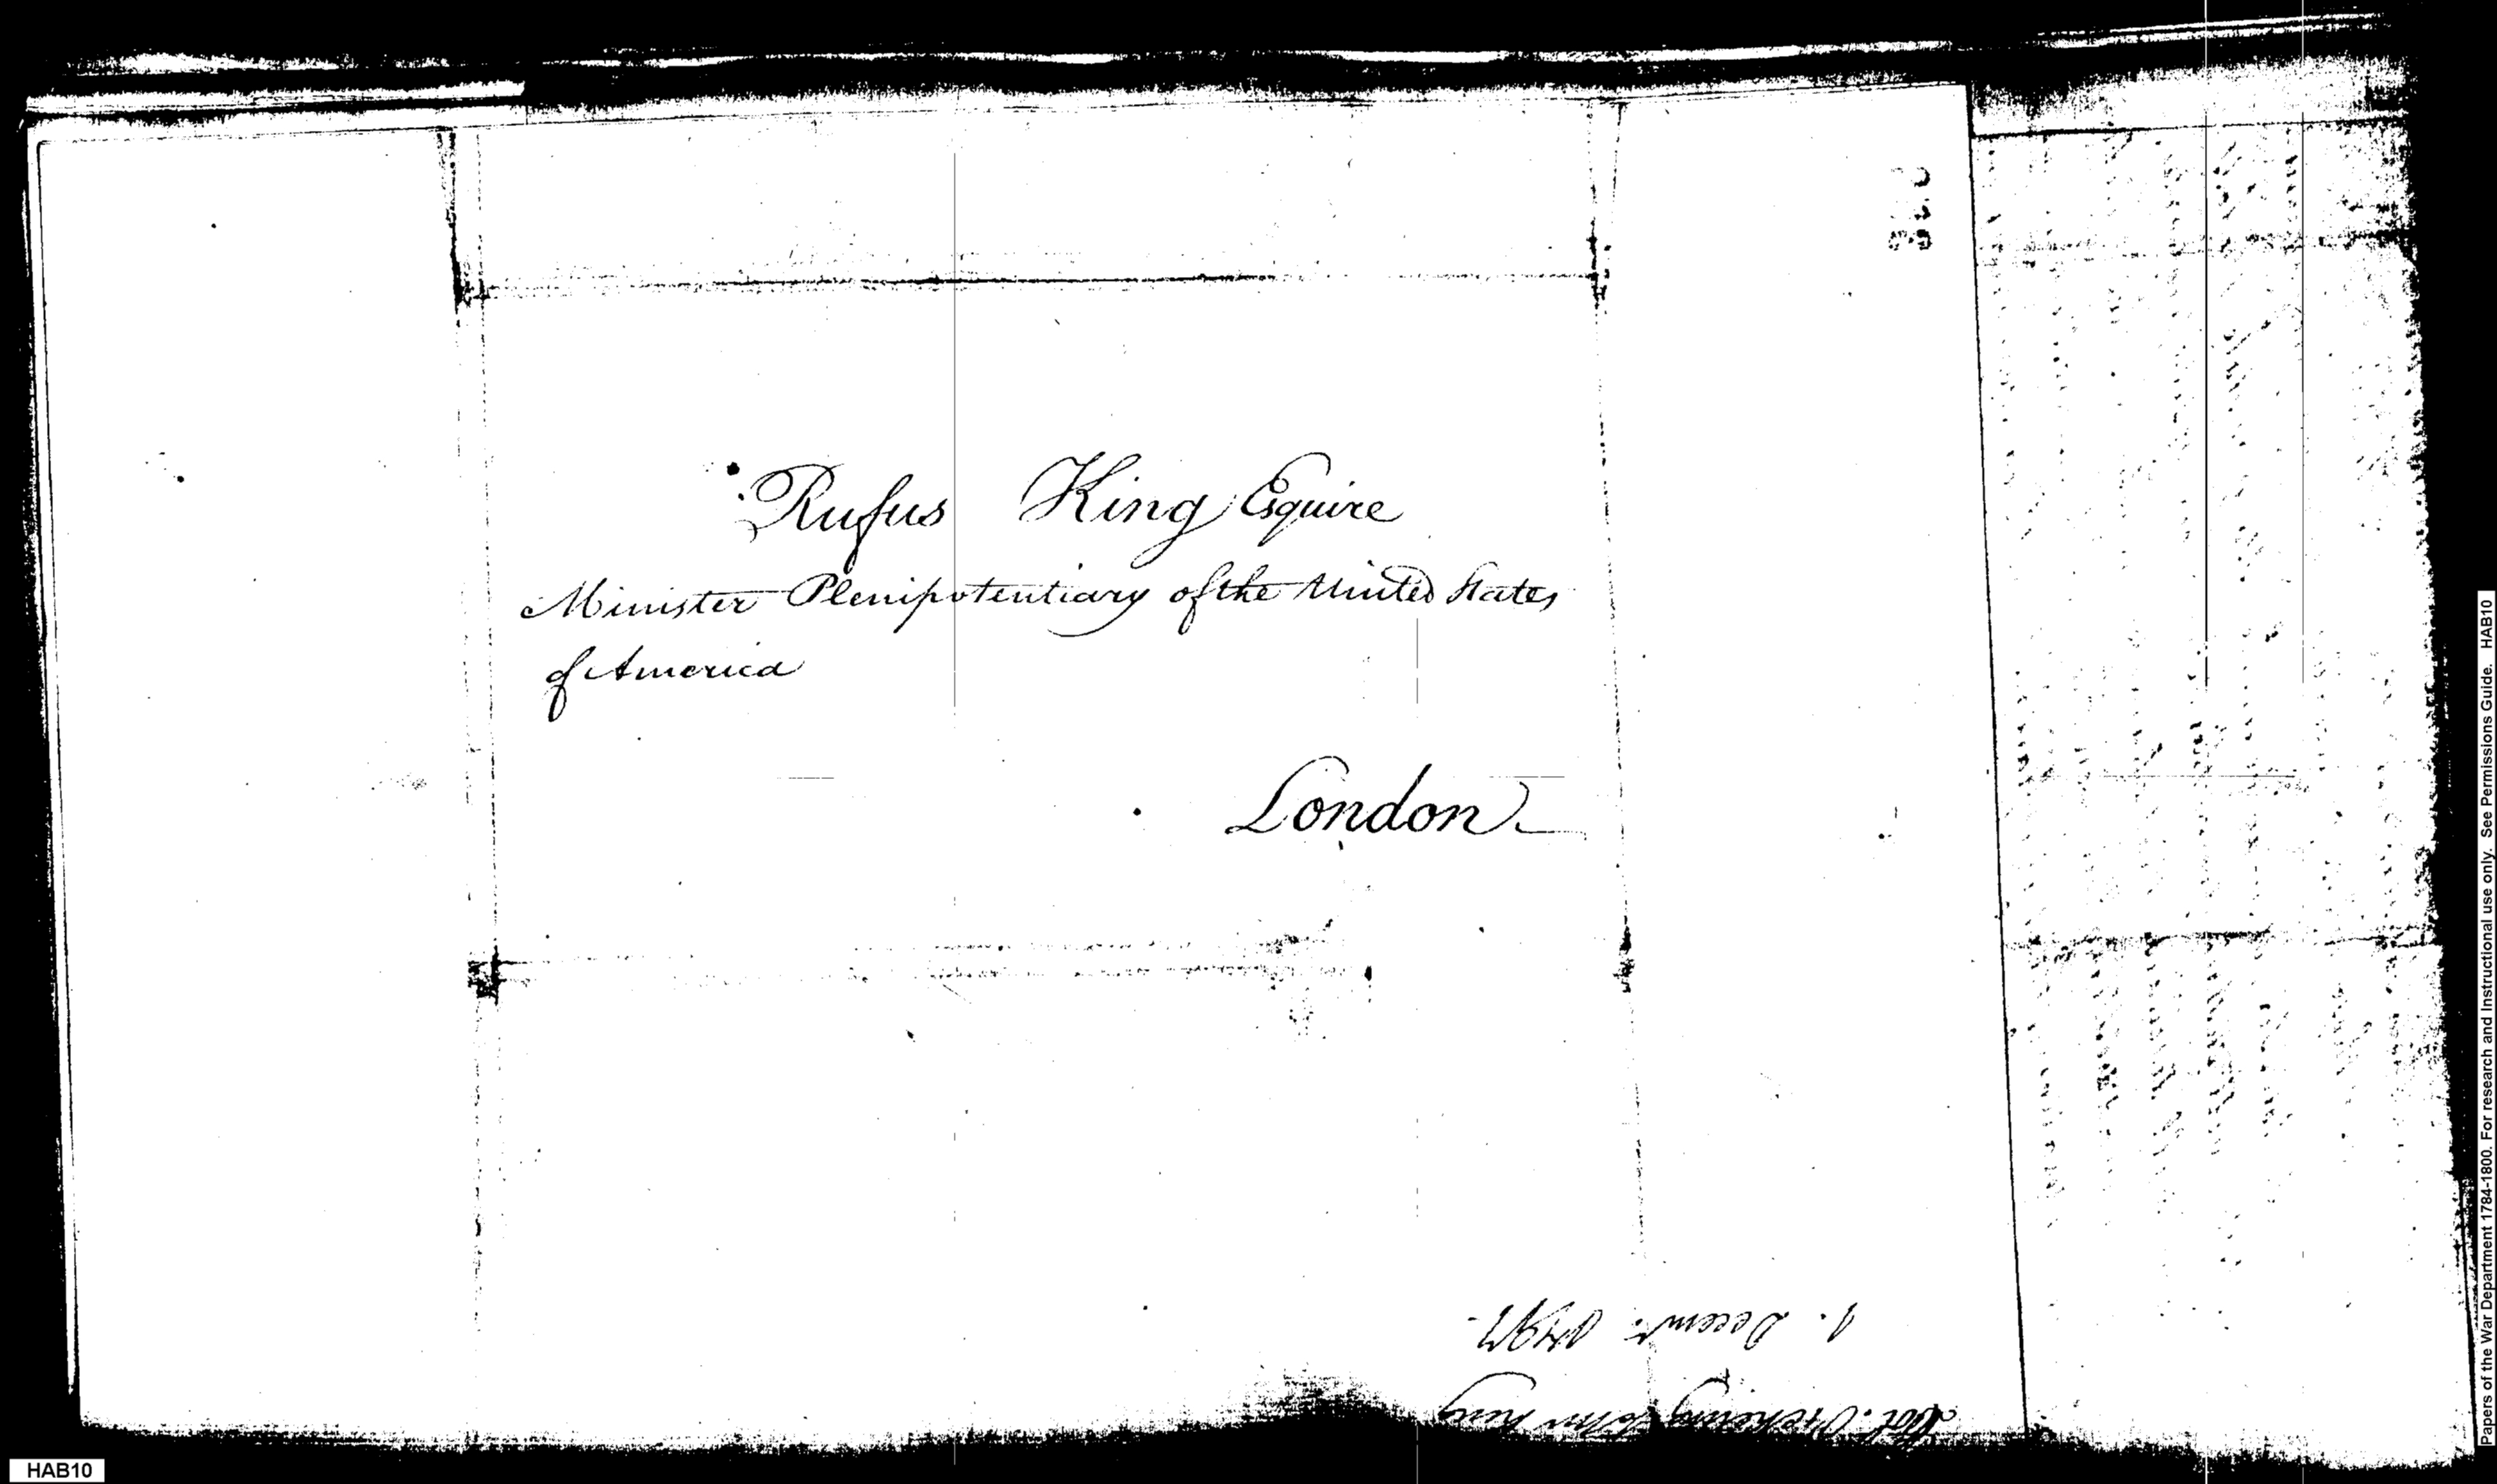 Rufus King Esquire
Minister Plenipotentiary of the United States
of America
London
Pickering to Mr King
9. Decemr. 1797.
HAB10
Papers of the War Department 1784-1800. For research and Instructional use only. See Permissions Guide. HAB10